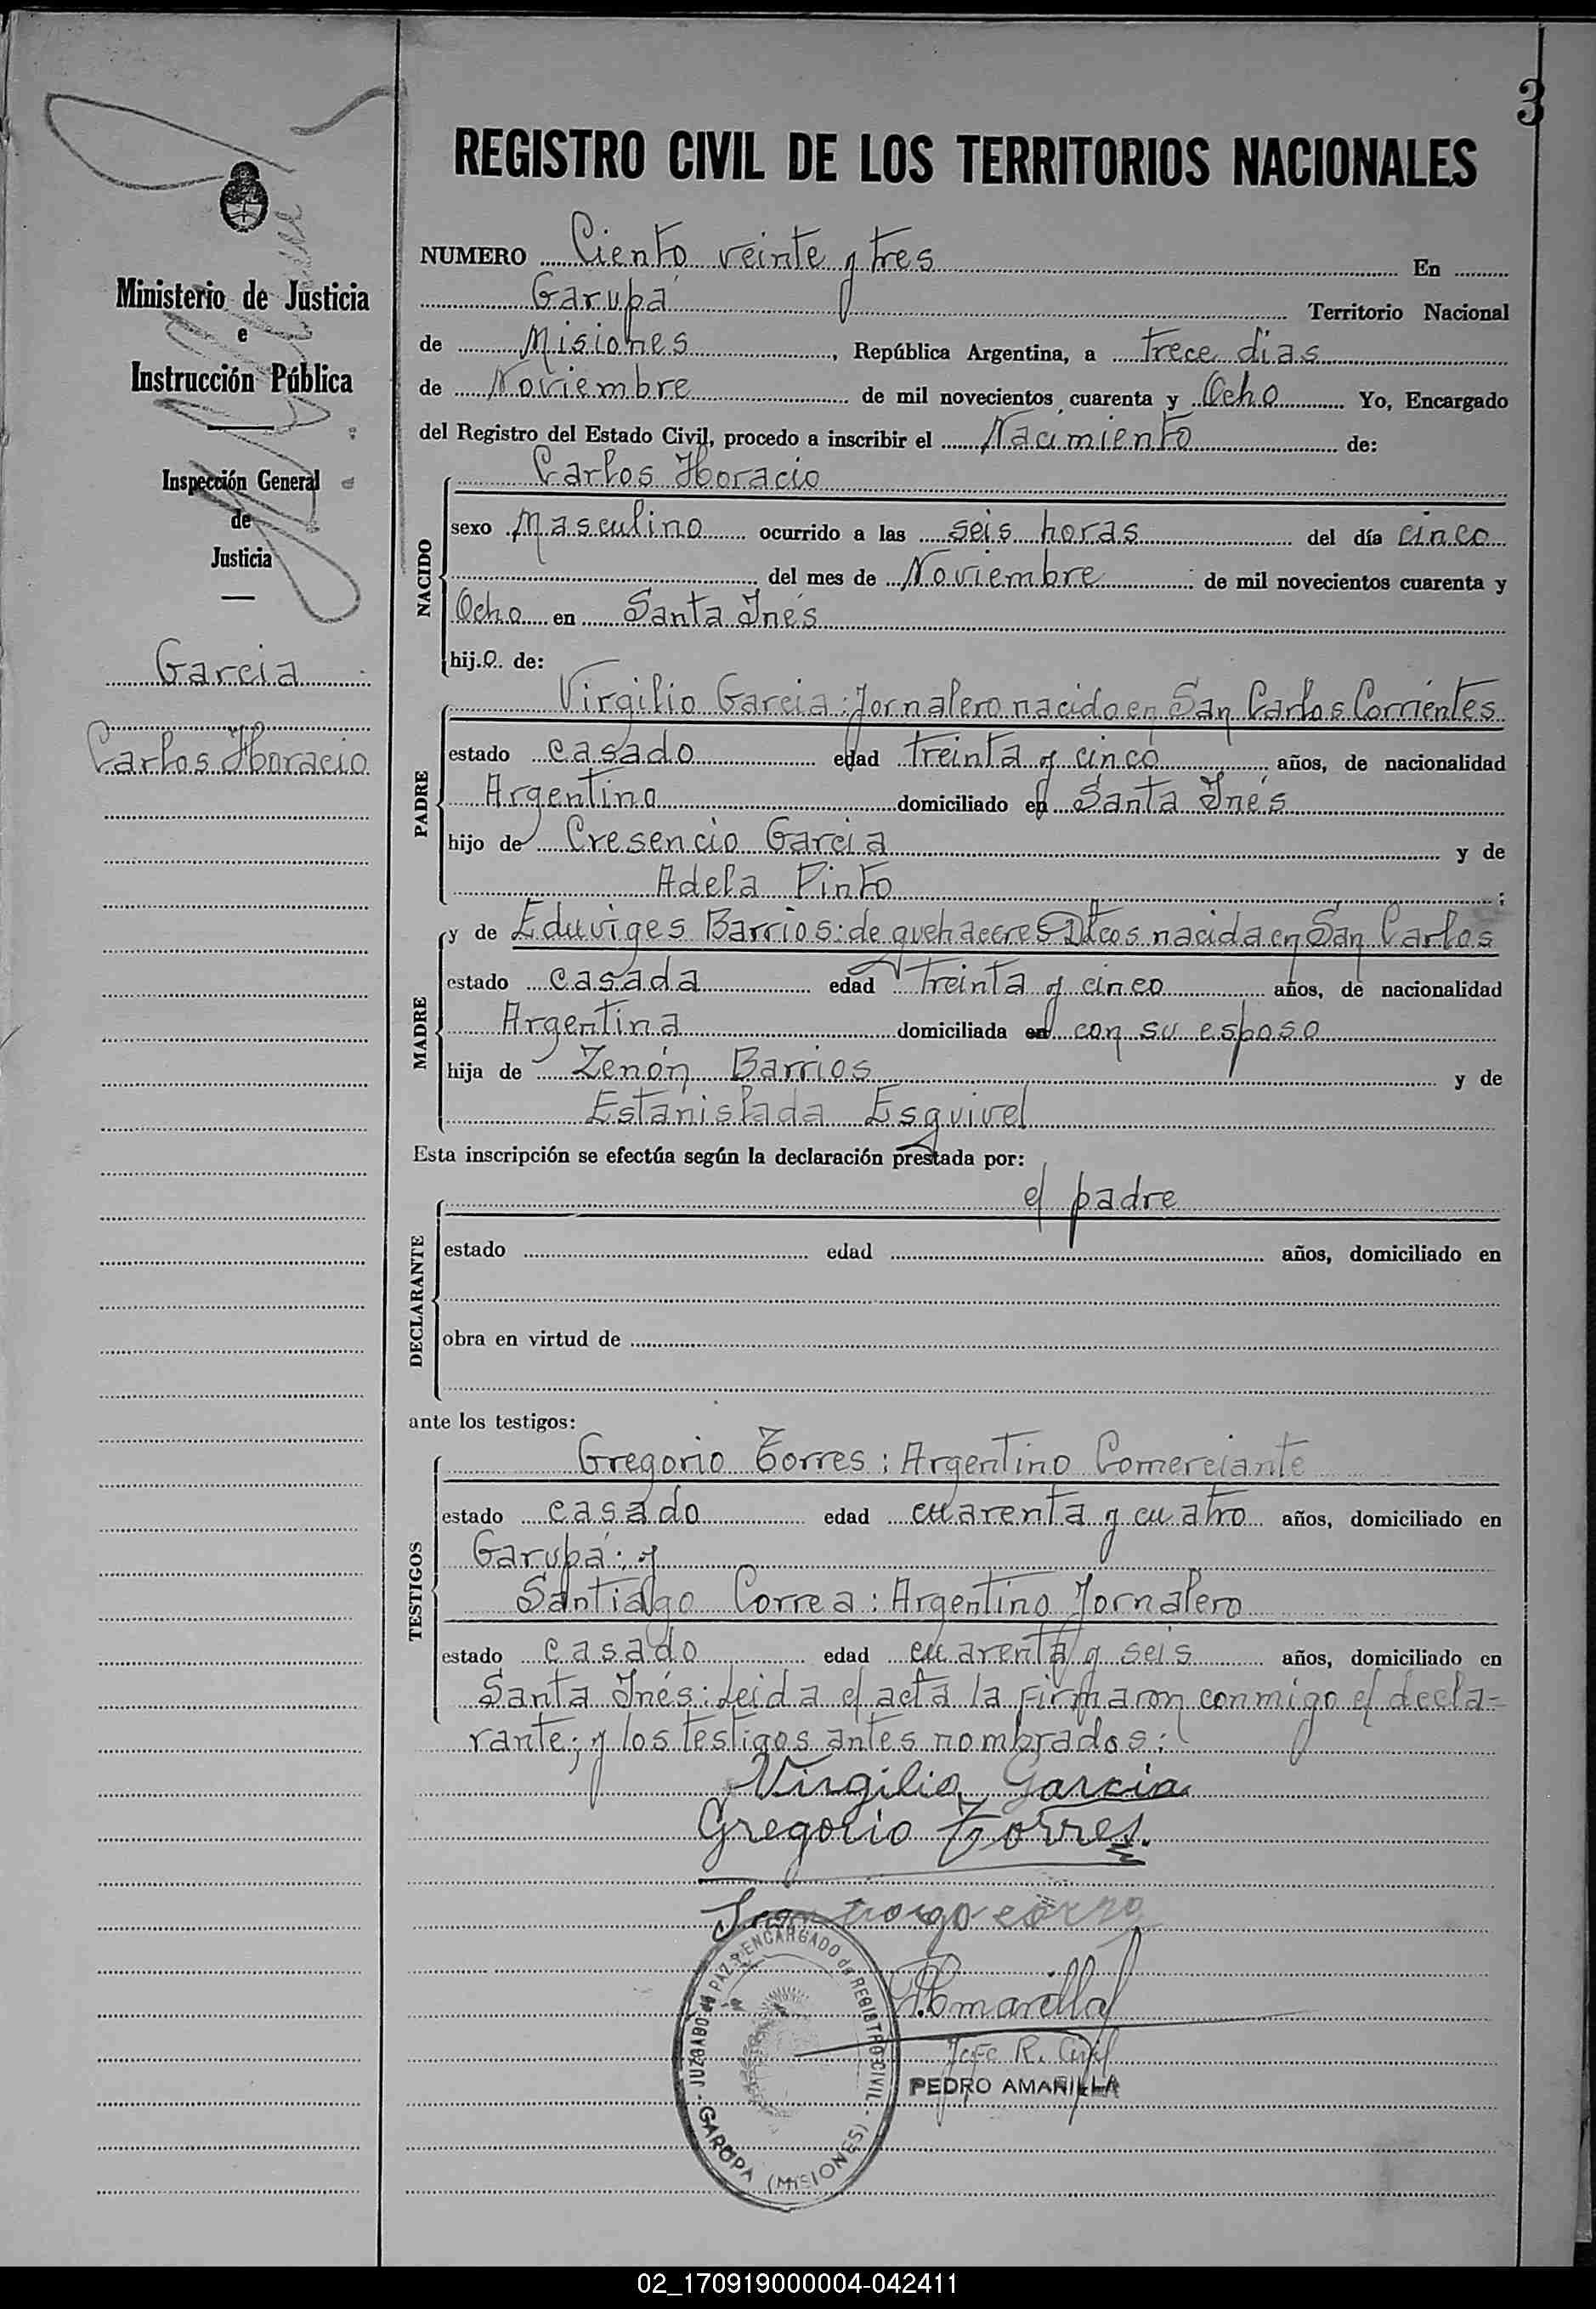 3
REGISTRO CIVIL DE LOS TERRITORIOS NACIONALES
Ministerio de Justicia
e
Instrucción Pública
Inspección General
de
Justicia
Garcia
Carlos Horacio
NUMERO Ciento veinte y tres En
Garupá Territorio Nacional
de Misiones, República Argentina, a trece dias
de Noviembre de mil novecientos cuarenta y Ocho Yo, Encargado
del Registro del Estado Civil, procedo a inscribir el Nacimiento de:
NACIDO
Carlos Horacio
sexo Masculino ocurrido a las seis horas del día cinco
del mes de Noviembre de mil novecientos cuarenta y
Ocho en Santa Inés
hijo de:
PADRE
Virgilio Garcia: Jornalero nacido en San Carlos Corrientes
estado casado edad treinta y cinco años, de nacionalidad
Argentina domiciliado en Santa Inés
hijo de Cresencio Garcia y de
Adela Pinto ;
MADRE
y de Eduviges Barrios: de quehaceres Dtcos nacida en San Carlos
estado casada edad treinta y cinco años, de nacionalidad
Argentina domiciliada en con su esposo
hija de Zenón Barrios y de
Estanislada Esquivel
Esta inscripción se efectúa según la declaración prestada por:
DECLARANTE
el padre
estado edad años, domiciliado en
obra en virtud de
ante los testigos:
TESTIGOS
Gregorio Torres: Argentino Comerciante
estado casado edad cuarenta y cuatro años, domiciliado en
Garupá: y
Santiago Correa: Argentino Jornalero
estado casado edad cuarenta y seis años, domiciliado en
Santa Inés: Leida el acta la firmaron conmigo el decla=
rante; y los testigos antes nombrados:
Virgilio Garcia
Gregorio Torres.
JUZGADO de PAZ y ENCARGADO de REGISTRO CIVIL
GARUPA (MISIONES)
PAmarilla
Jefe R. Civil
PEDRO AMARILLA
02_170919000004-042411